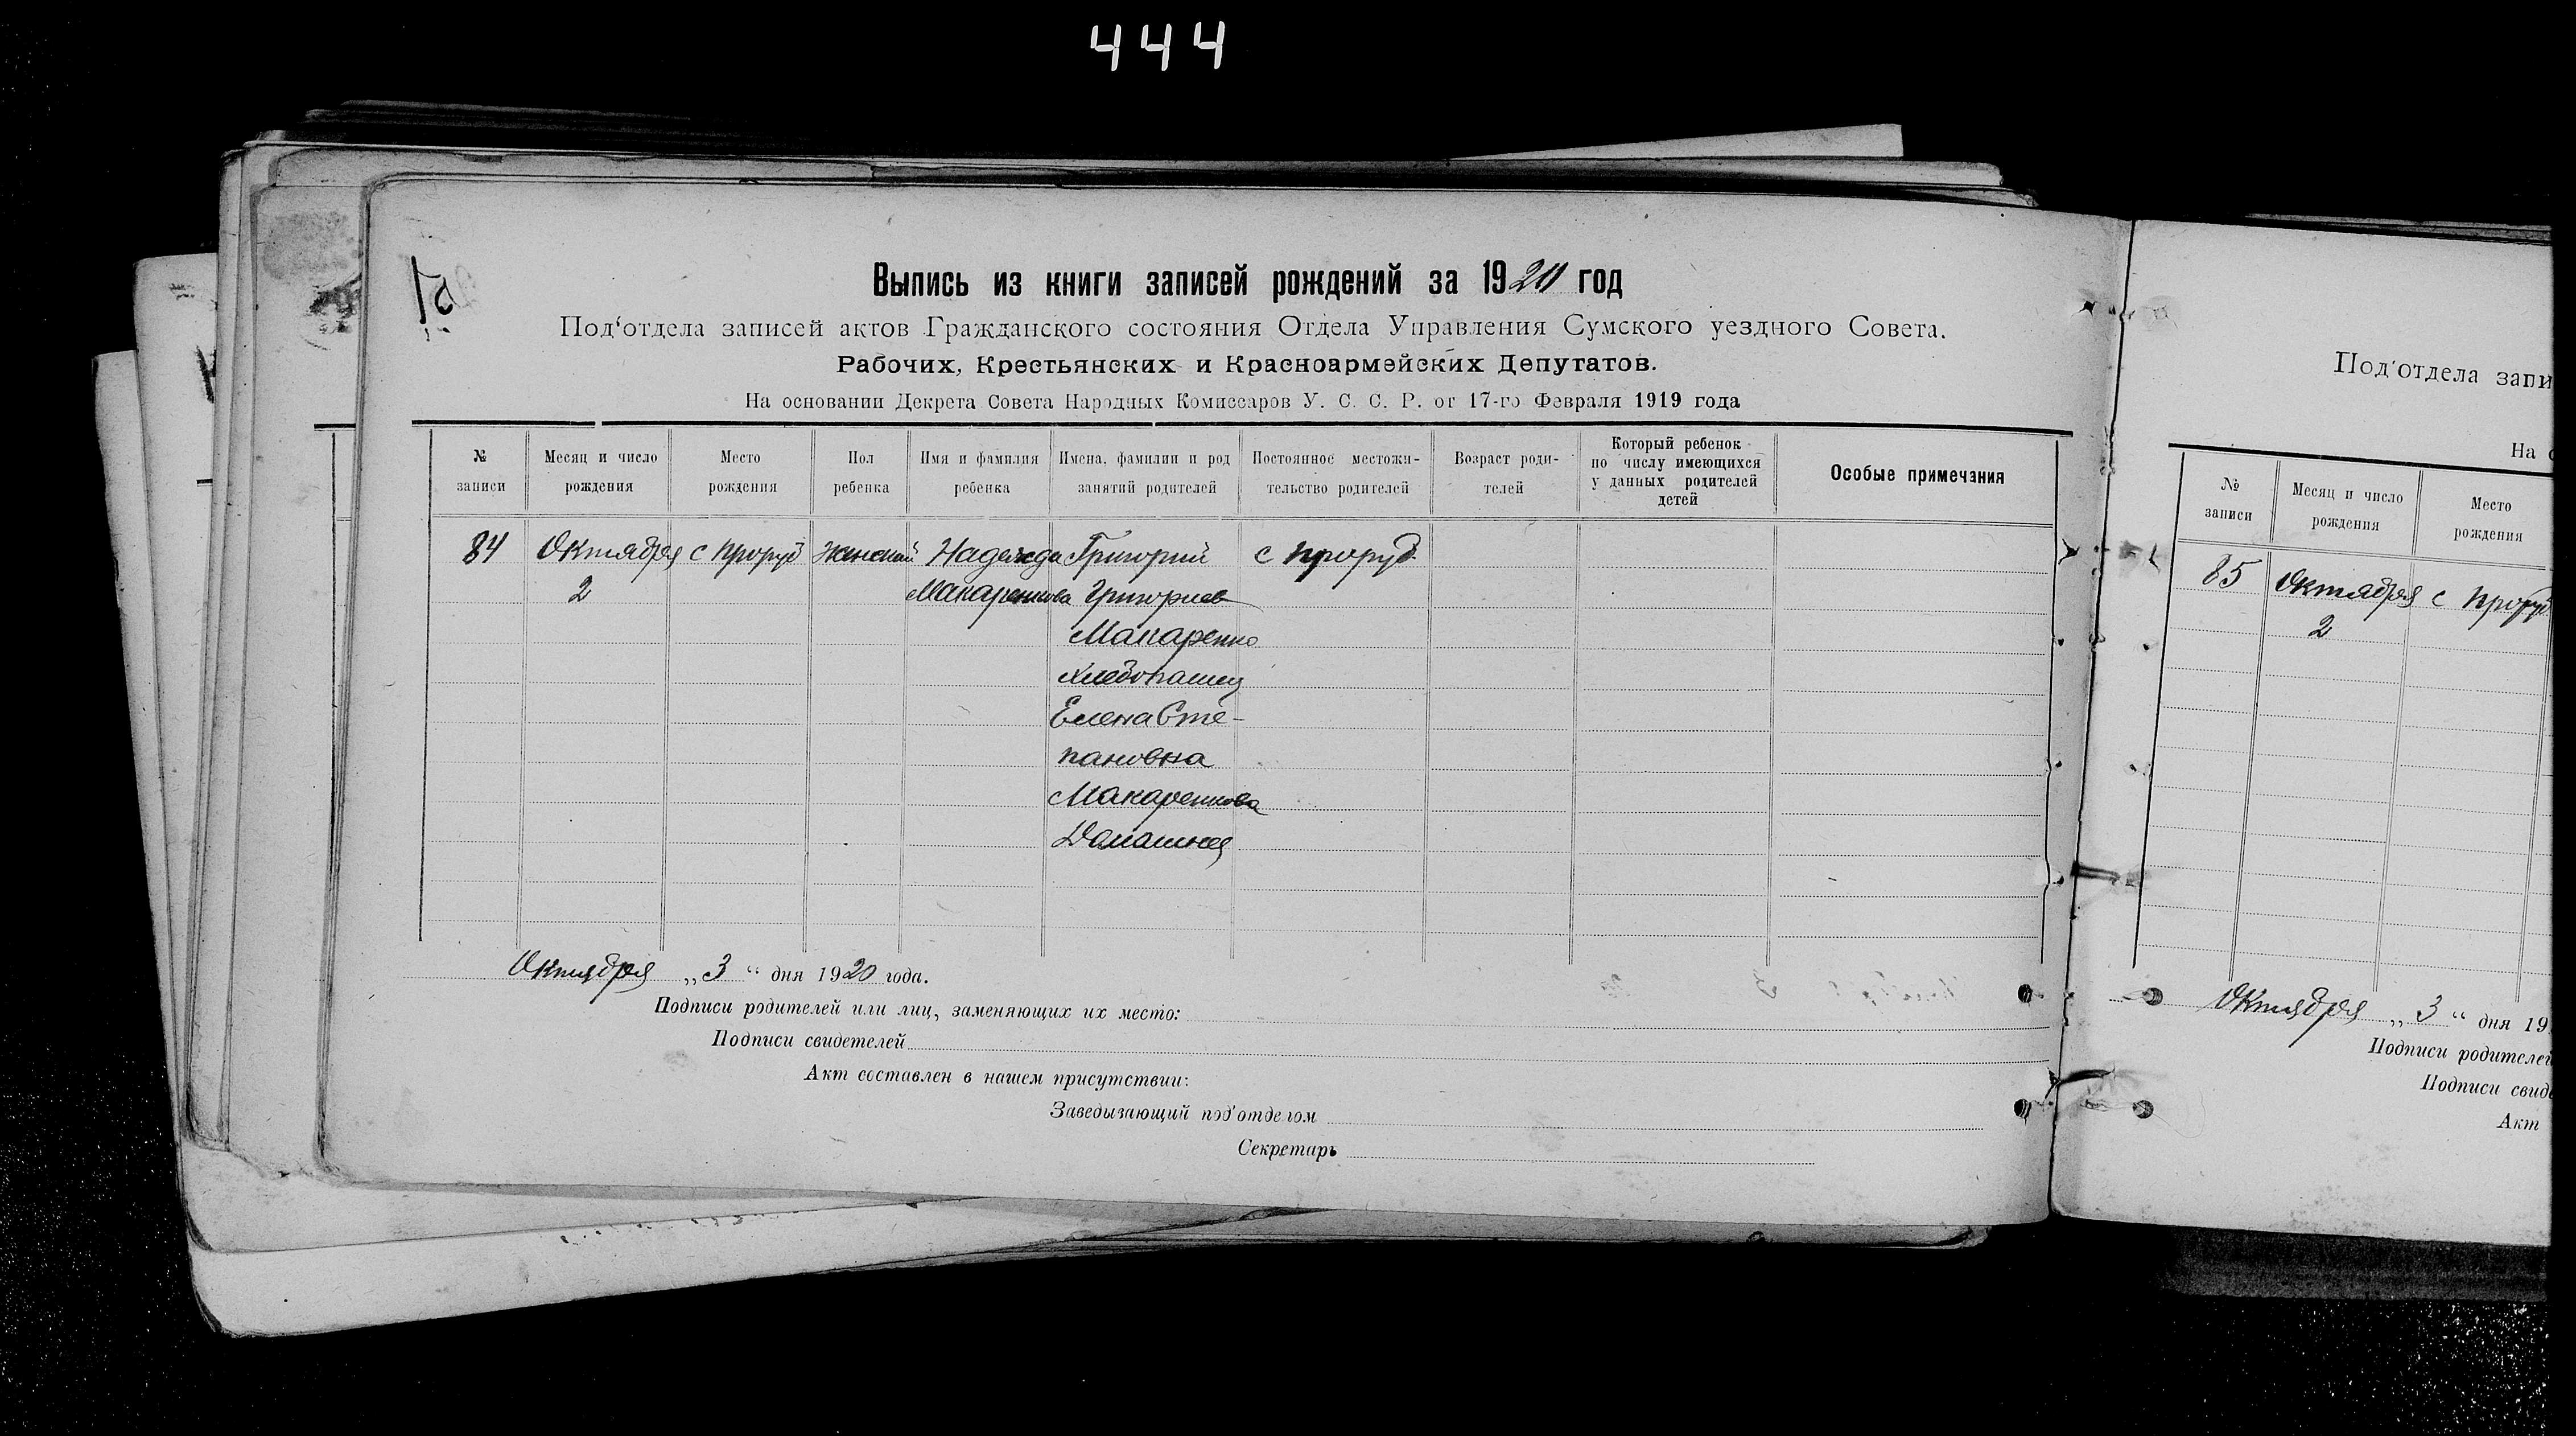 444
Выпись из книги записей рождений за 1920 год
Под'отдела записей актов Гражданского состояния Отдела Управления Сумского уездного Совета.
Рабочих, Крестьянских и Красноармейских Депутатов.
На основании Декрета Совета Народных Комиссаров У. С. С. Р. от 17-го Февраля 1919 года
№ записи
Месяц и число рождения
Место рождения
Пол ребенка
Имя и фамилия ребенка
Имена, фамилии и род занятий родителей
Постоянное местожи-
тельство родителей
Возраст роди-
телей
Который ребенок
по числу имеющихся
у данных родителей
детей
Особые примечания
84 Октября с Проруб Женский Надежда Григорий с Проруб
2 Макаренкова Григориев
Макаренко
хлебопашец
Елена Сте-
пановна
Макаренкова
Домашняя
Октября „3“ дня 1920 года.
Подписи родителей или лиц, заменяющих их место:
Подписи свидетелей
Акт составлен в нашем присутствии:
Заведывающий под'отделом
Секретарь
Под'отдела запи
На
№ записи
Месяц и число рождения
Место рождения
85 Октября с Проруб
2
Октября „3“ дня 19
Подписи родителей
Подписи свиде
Акт